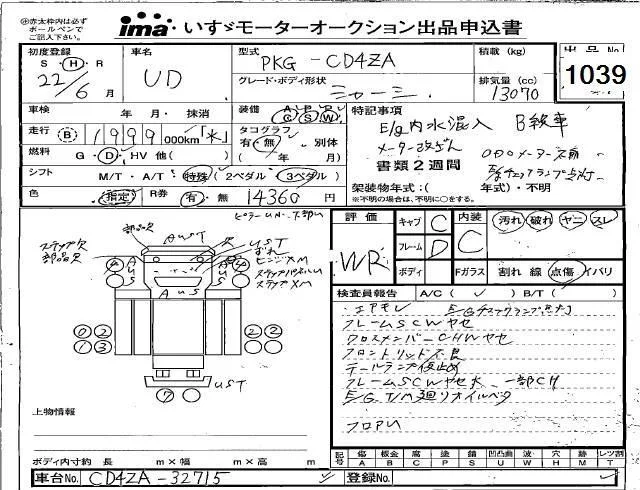 ※赤太枠内は必ず
ボールペンで
ご記入下さい。
ima いすゞモーターオークション出品申込書
初度登録 S・H・R 22/6月
車名 UD
型式 PKG-CD4ZA
積載 (kg)
出品No 1039
グレード・ボディ形状 シャーシ
排気量 (cc) 13070
車検 年 月・抹消
装備 A P R C S W
特記事項
走行 B 1999 000km「米」
タコグラフ 有・無 別体
E/g内水混入 B級車
メーター改ざん
燃料 G・D・HV 他( )
( 年 月)
書類2週間
ODOメーター不良
シフト M/T・A/T 特殊 (2ペダル 3ペダル)
E/gチェックランプ点灯
架装物年式:( 年式)・不明
色 指定 R券 有・無 14360 円
※不明の場合は、不明に○をする。
評価 WR
キャブ C
内装 C
汚れ 破れ ヤニ スレ
フレーム D
ボディ
Fガラス 割れ 線 点傷 イバリ
ステップ欠
部品欠
部品欠
AUST
欠
UST
ずれ
ヒンジ×M
ステップパネルUM
ステップ×M
AUS
4
4
1
3
2
2
1
2
7
UST
検査員報告 A/C( ✓ ) B/T( )
・エアモレ E/Gチェックランプ点灯
フレームSCWヤセ
クロスメンバーCHWヤセ
フロントリッド不良
テールランプ仮止め
フレームSCWヤセ大 一部CH
E/G T/M廻りオイルベタ
フロアU
上物情報
ボディ内寸約 長 m×幅 m×高 m
記号
傷 板金 腐 塗 錆 凹凸曲 波 穴 跡 レツ割
A B C P S U W H M T
車台No. CD4ZA-32715
登録No.